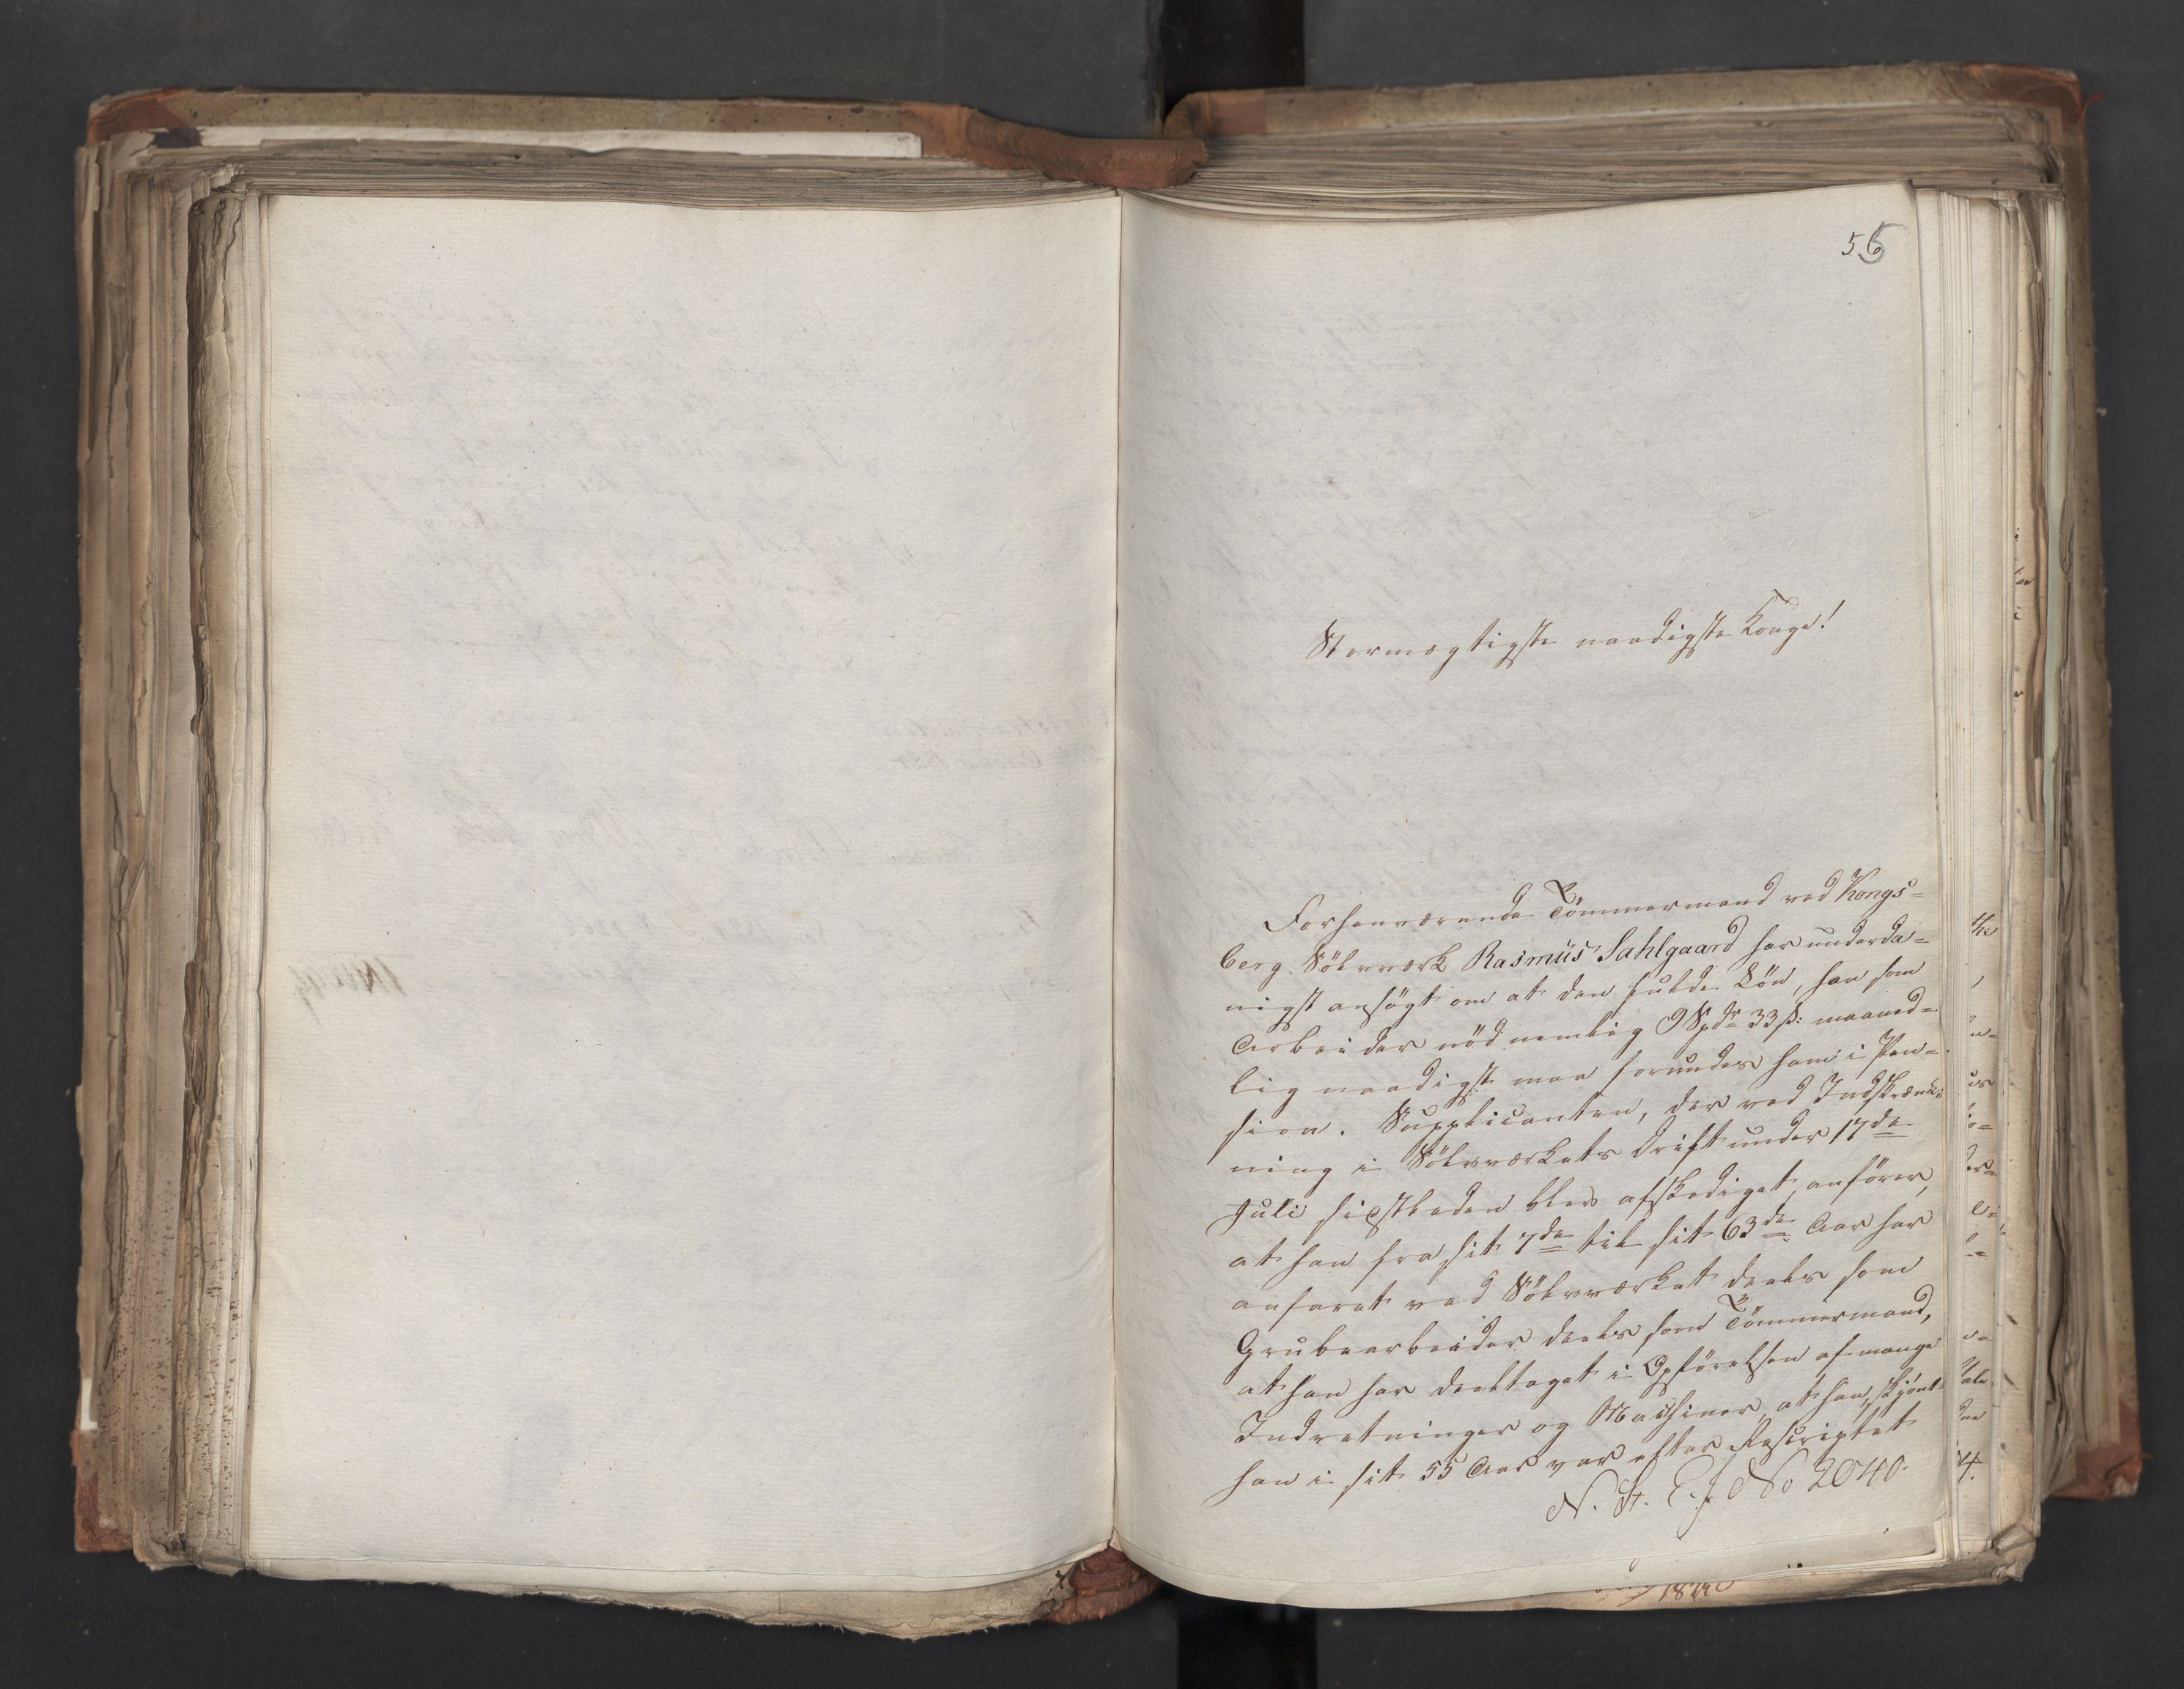 56
Stormægtigste naadigste Konge!
Forhenværende Tömmermand ved Kongs=
berg Sölvværk Rasmus Sahlgaard har underda=
nigst ansögt om at den fulde Lön, han som
Arbeider nöd nemlig 9 Spdr 33 ß: maaned=
lig naadigst maa forundes ham i Pen=
sion. Supplicanten, der ved Indskrænk=
ning i Sölvværkets Drift under 17de
Juli sidstleden blev afskediget, anförer,
at han fra sit 7de til sit 63de Aar har
anfaret ved Sölvværket deels som
Grubearbeider deels som Tömmermand,
at han har deeltaget i Opförelsen af mange
Indretninger og Maschiner, at han, skjönt
han i sit 55 Aar var efter Rescriptet
N. St. E. J. No 2040.